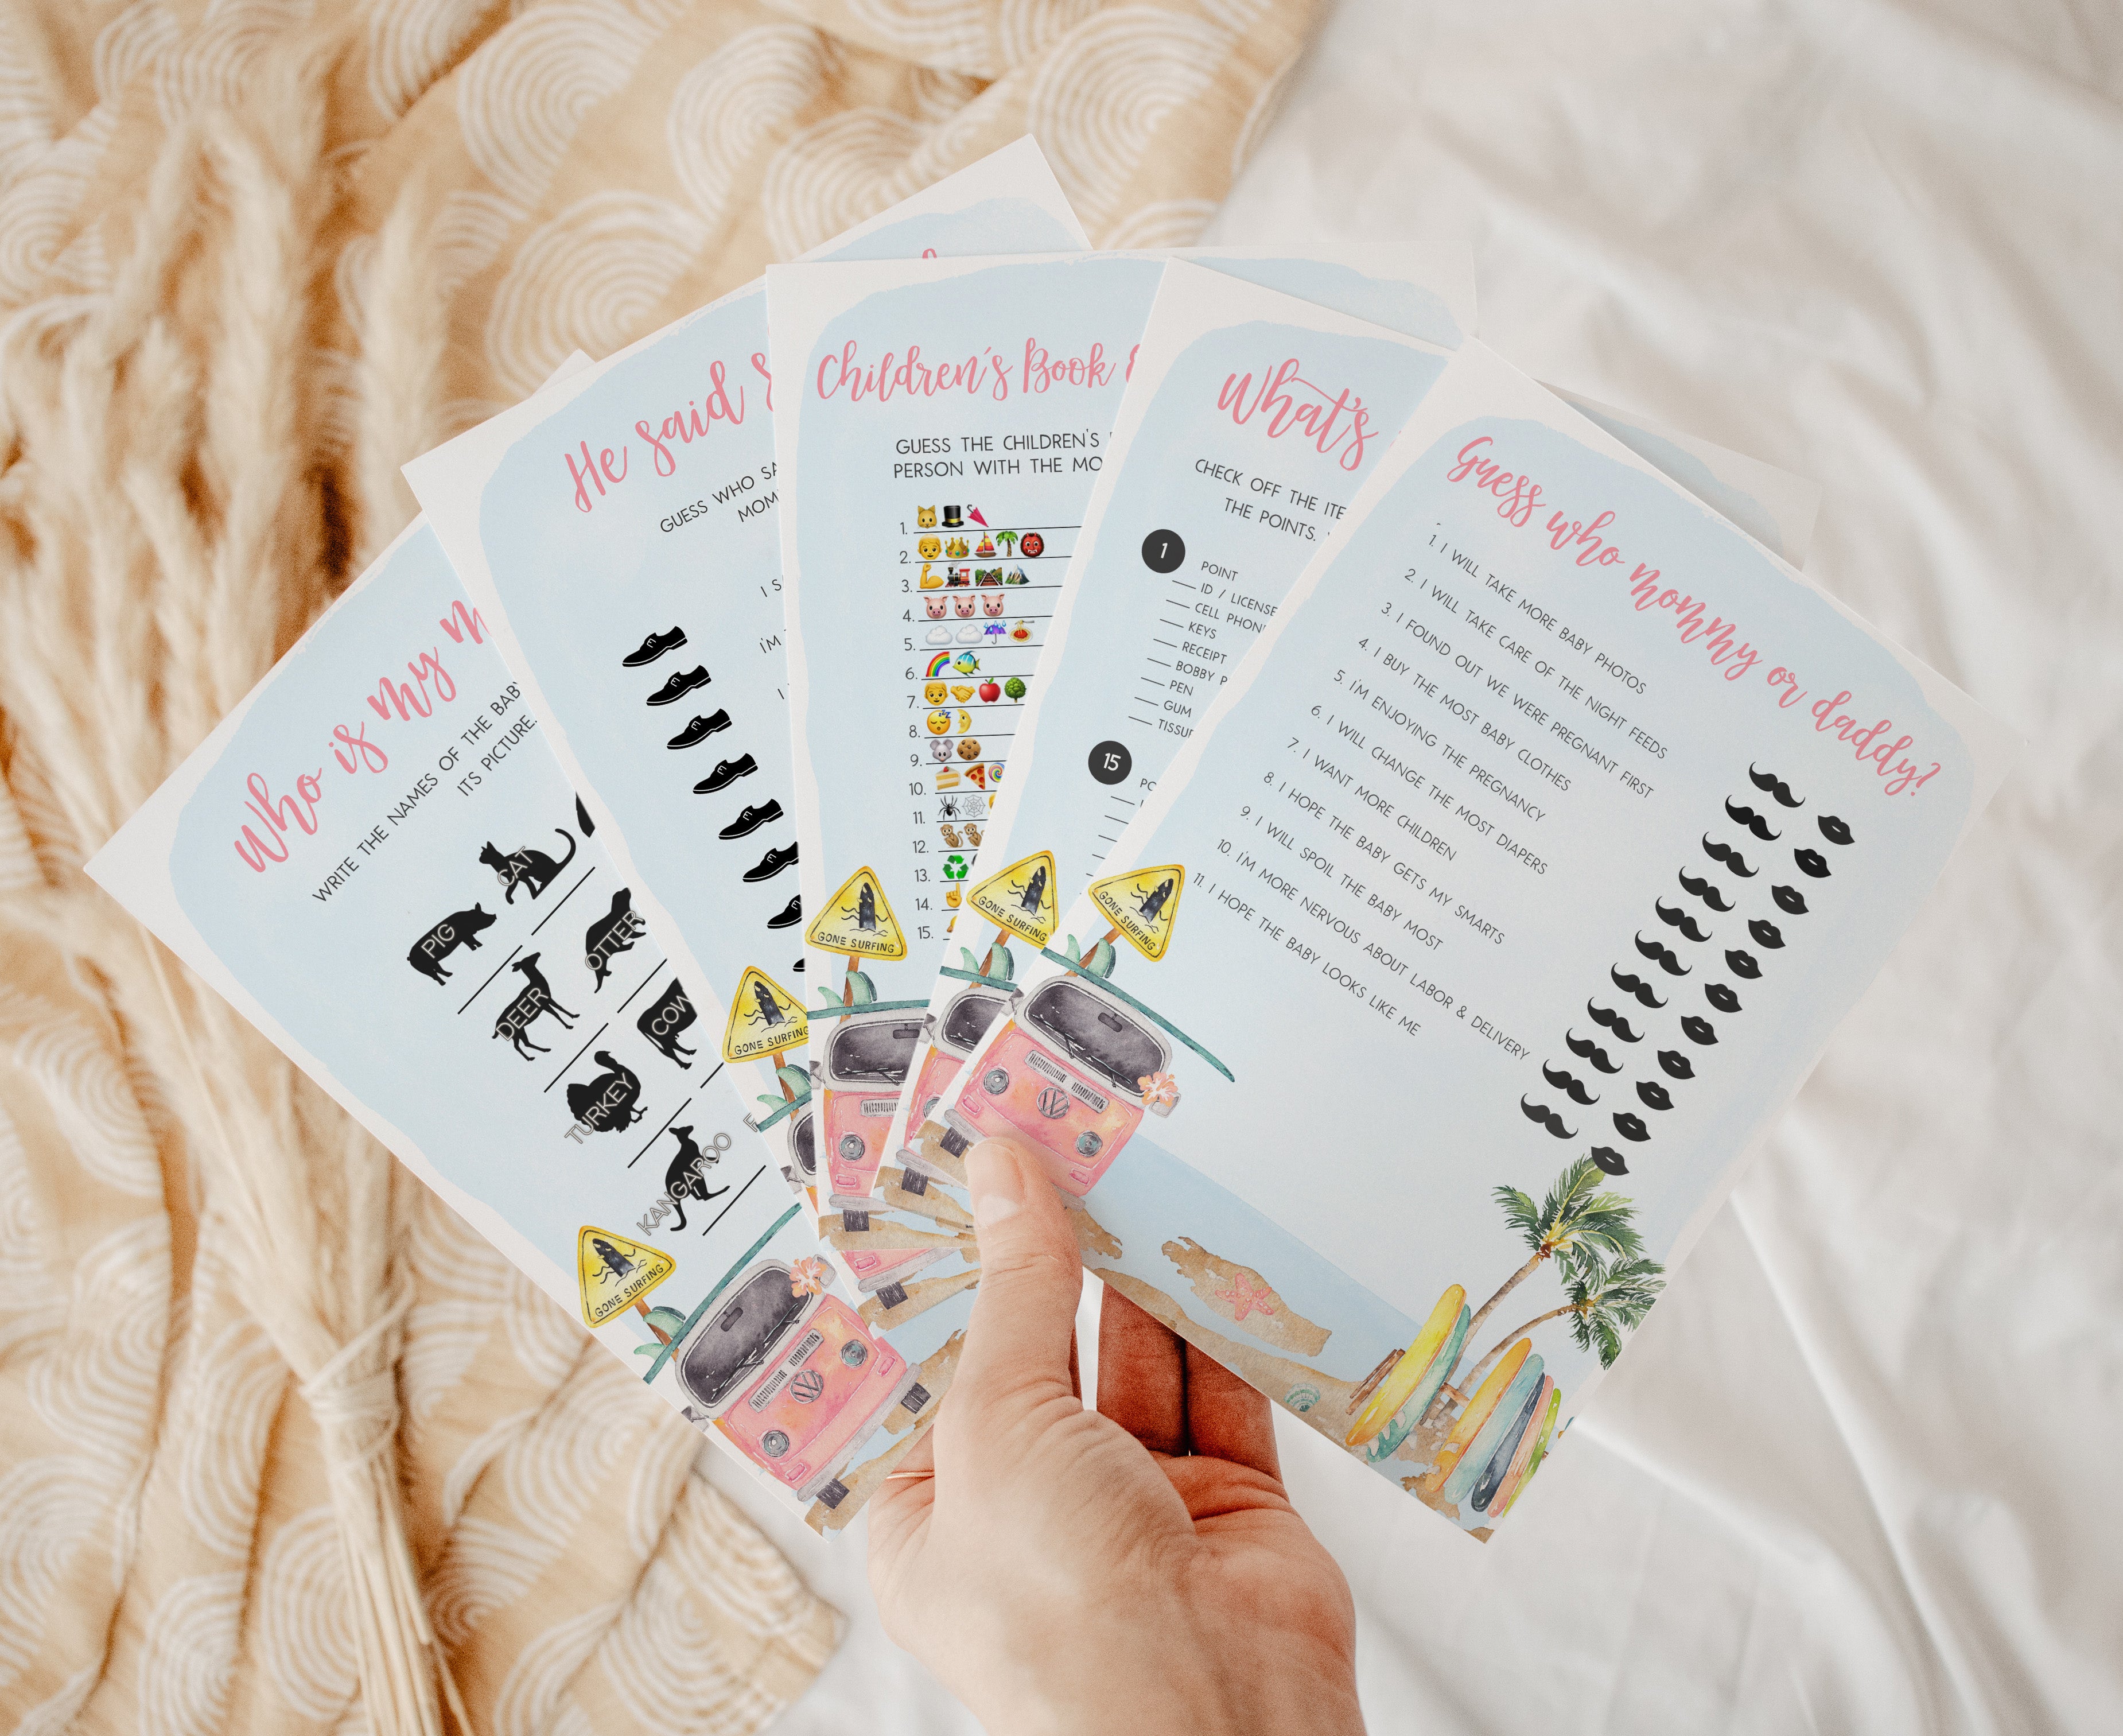 Who is my m
WRITE THE NAMES OF THE BABY
ITS PICTURE.
CAT
PIG
OTTER
DEER
COW
TURKEY
KANGAROO
GONE SURFING
He said
GUESS WHO SA
MOM
I S
I'M
I
GONE SURFING
Children's Book
GUESS THE CHILDREN'S
PERSON WITH THE MO
1.
2.
3.
4.
5.
6.
7.
8.
9.
10.
11.
12.
13.
14.
15.
GONE SURFING
What's
CHECK OFF THE ITE
THE POINTS.
1
POINT
ID / LICENSE
CELL PHON
KEYS
RECEIPT
BOBBY P
PEN
GUM
TISSU
15
PO
GONE SURFING
Guess who mommy or daddy?
1. I WILL TAKE MORE BABY PHOTOS
2. I WILL TAKE CARE OF THE NIGHT FEEDS
3. I FOUND OUT WE WERE PREGNANT FIRST
4. I BUY THE MOST BABY CLOTHES
5. I'M ENJOYING THE PREGNANCY
6. I WILL CHANGE THE MOST DIAPERS
7. I WANT MORE CHILDREN
8. I HOPE THE BABY GETS MY SMARTS
9. I WILL SPOIL THE BABY MOST
10. I'M MORE NERVOUS ABOUT LABOR & DELIVERY
11. I HOPE THE BABY LOOKS LIKE ME
GONE SURFING